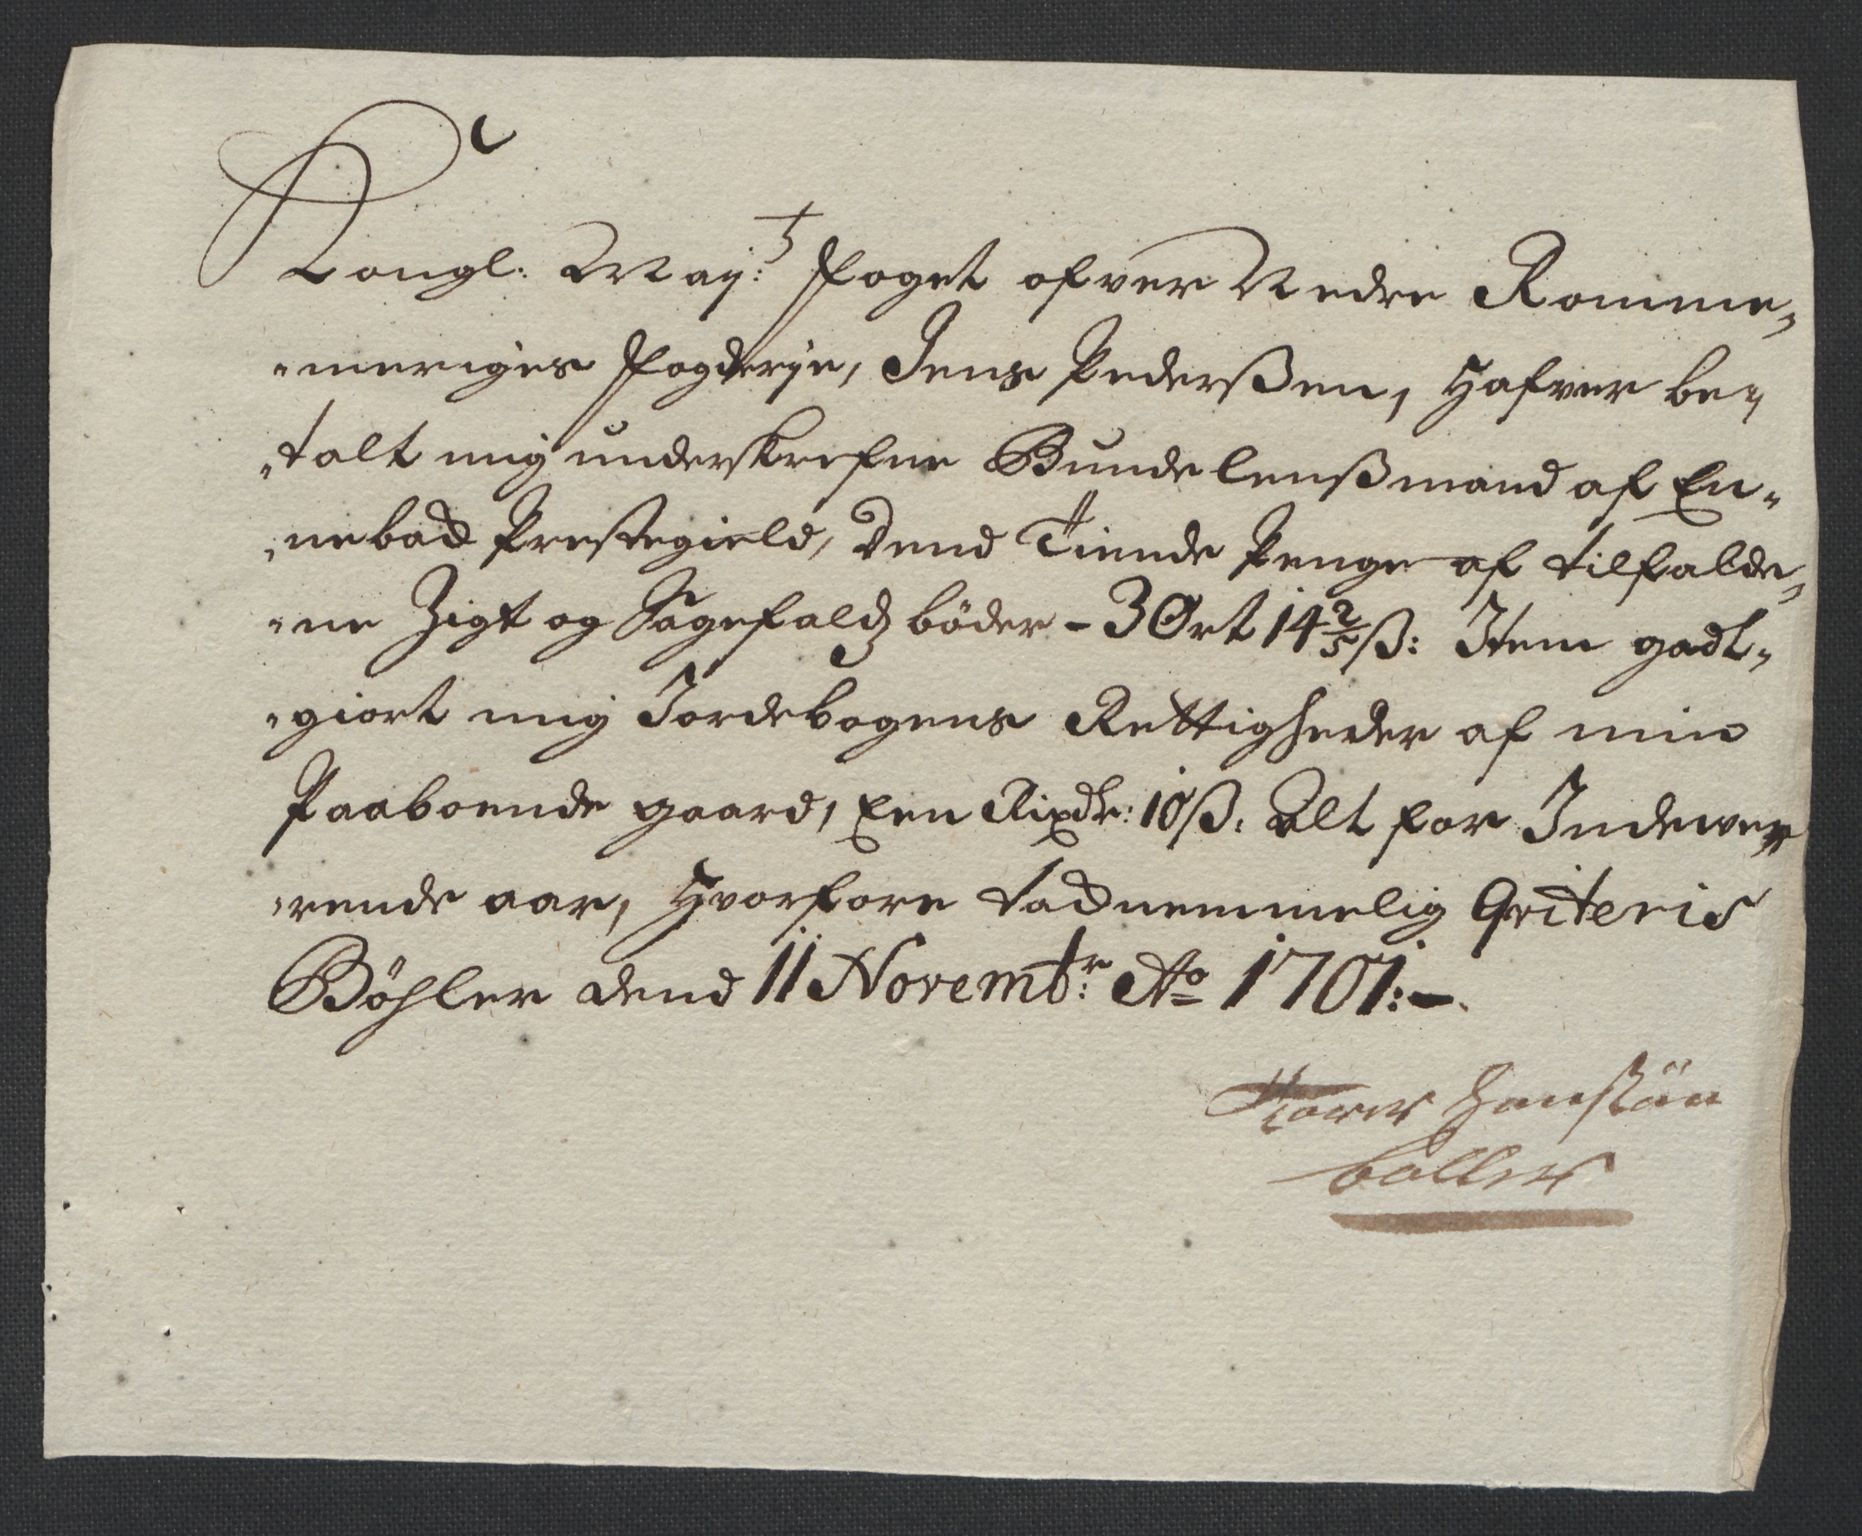 Kongl: May:t Foget ofver Nedre Romme-
-meriges Fogderje, Jens Pederßen, Hafver be-
-talt mig underskrefne Bunde lenßmand af En-
-neback Prestegield, Dend Tiende Penge af tilfalde-
-ne Zigt og Sagefaldz bøder - 3 Ort 14 2/5 ß: Item godt-
-giort mig Jordebogens Rettigheder af min
Paaboende gaard, Een Rixdr: 10 ß. Alt for Indewe-
-rende aar, Hvorfore tacknemmelig Qviteris
Böhler dend 11 Novembr: Ao 1701:-
Hanßøn